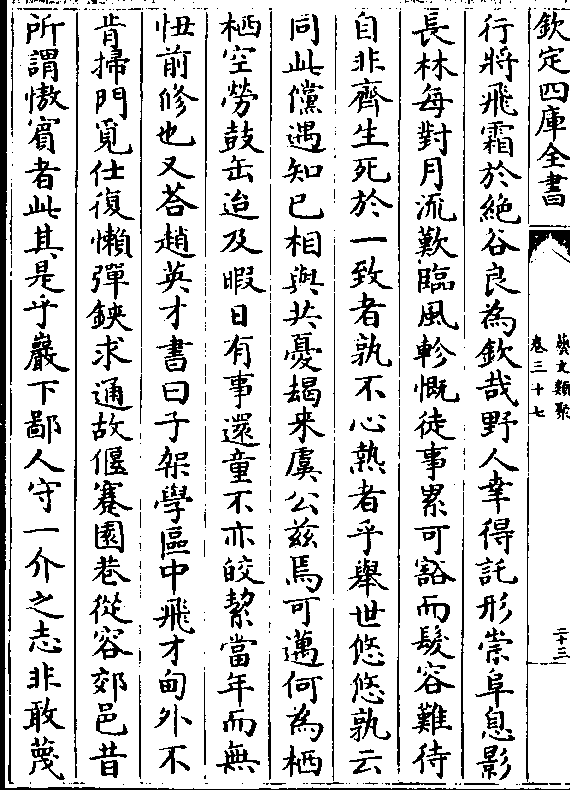 欽定四庫全書
藝文類聚
卷三十七
二十三
行將飛霜於絶谷良為欽哉野人幸得託形崇阜息影
長林每對月流歎臨風軫慨徒事累可豁而髮容難待
自非齊生死於一致者孰不心熱者乎舉世悠悠孰云
同此儻遇知已相與共憂朅来虞公兹焉可邁何為栖
栖空勞鼓缶迨及暇日有事還童不亦皎潔當年而無
忸前修也又荅趙英才書曰子架學區中飛才甸外不
肯掃門覓仕復懶彈鋏求通故偃蹇園巷從容郊邑昔
所謂慠賔者此其是乎巖下鄙人守一介之志非敢蔑